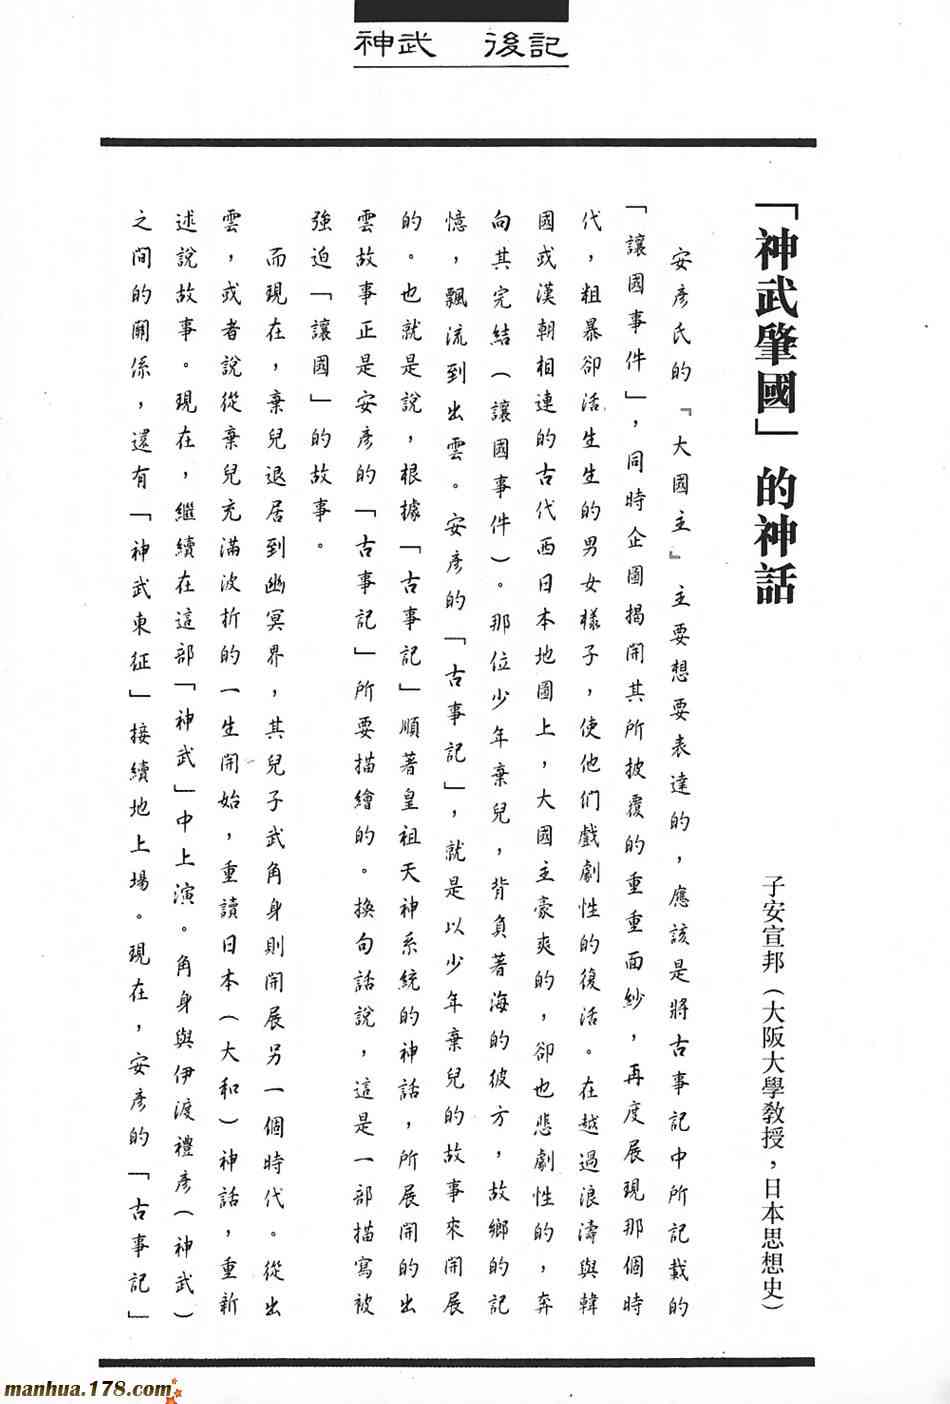 神武 後記
「神武肇國」的神話
子安宣邦（大阪大學教授，日本思想史）
安彥氏的『大國主』主要想要表達的，應該是將古事記中所記載的
「讓國事件」，同時企圖揭開其所披覆的重重面紗，再度展現那個時
代，粗暴卻活生生的男女樣子，使他们戲劇性的復活。在越過浪濤與韓
國或漢朝相連的古代西日本地圖上，大國主豪爽的，卻也悲劇性的，奔
向其完結（讓國事件）。那位少年棄兒，背負著海的彼方，故鄉的記
憶，飄流到出雲。安彥的「古事記」，就是以少年棄兒的故事來開展
的。也就是說，根據「古事記」順著皇祖天神系統的神話，所展開的出
雲故事正是安彥的「古事記」所要描繪的。換句話說，這是一部描寫被
強迫「讓國」的故事。
而現在，棄兒退居到幽冥界，其兒子武角身則開展另一個時代。從出
雲，或者說從棄兒充滿波折的一生開始，重讀日本（大和）神話，重新
述說故事。現在，繼續在這部「神武」中上演。角身與伊渡禮彥（神武）
之間的關係，還有「神武東征」接續地上場。現在，安彥的「古事記」
manhua.178.com